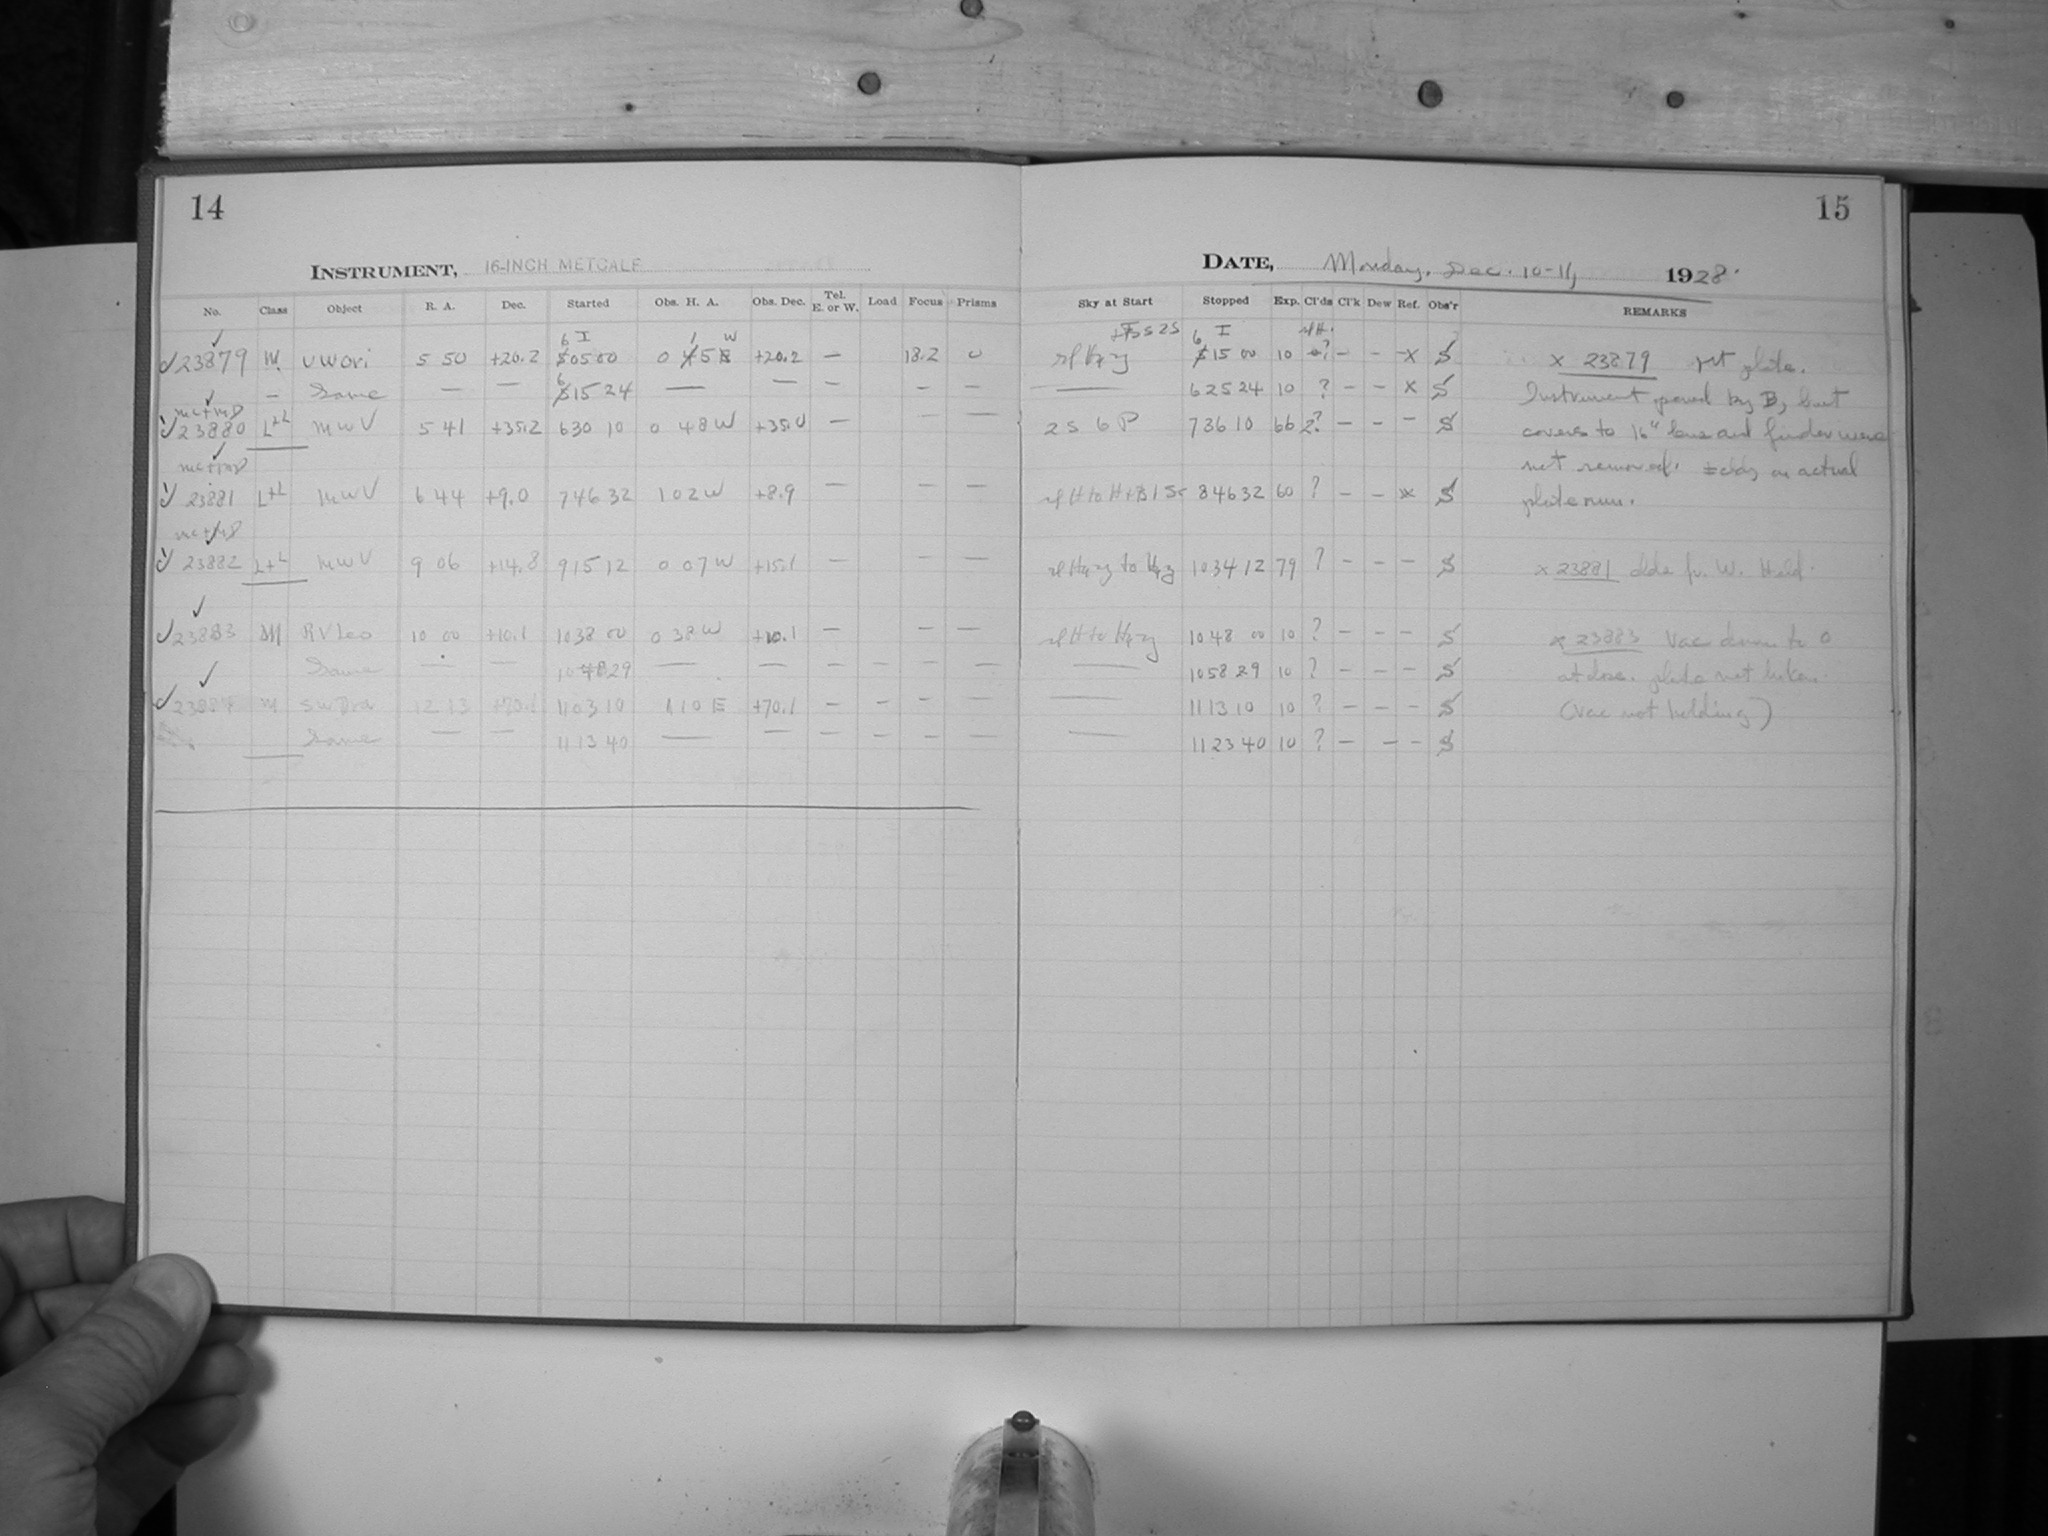 14
15
INSTRUMENT, 16-INCH METCALF
DATE, Monday, Dec. 10-11, 1928.
No. Class Object R. A. Dec. Started Obs. H. A. Obs. Dec. Tel. E. or W. Load Focus Prisms Sky at Start Stopped Exp. Cl'ds Cl'k Dew Ref. Obs'r REMARKS
23879 M UW Ori 5 50 +20.2 6 05 00 +20.2 — 18.2 0 6 15 00 10 ? — — x S x 23879 plate.
— Same — — 6 15 24 — — — — — — 6 25 24 10 ? — — x S Instrument by B, but
23880 L+L MWV 5 41 +35.2 6 30 10 0 48 W +35.0 — — — 2 S 6 P 7 36 10 66 2? — — — S covers to 16" lens and finder were
not removed. on actual
23881 L+L MWV 6 44 +9.0 7 46 32 1 02 W +8.9 — — — 8 46 32 60 ? — — x S plate num.
23882 L+L MWV 9 06 +14.8 9 15 12 0 07 W +15.1 — — — 10 34 12 79 ? — — — S x 23881 W.
23883 M RV Leo 10 00 +10.1 10 38 00 0 38 W +10.1 — — — 10 48 00 10 ? — — — S x 23883 Vac down to 0
Same — — 10 48 29 — — — — — — — 10 58 29 10 ? — — — S at close. plate not taken.
23884 M SW Dra 12 13 +70.1 11 03 10 1 10 E +70.1 — — — — — 11 13 10 10 ? — — — S (Vac not holding)
Same — — 11 13 40 — — — — — — — 11 23 40 10 ? — — — S